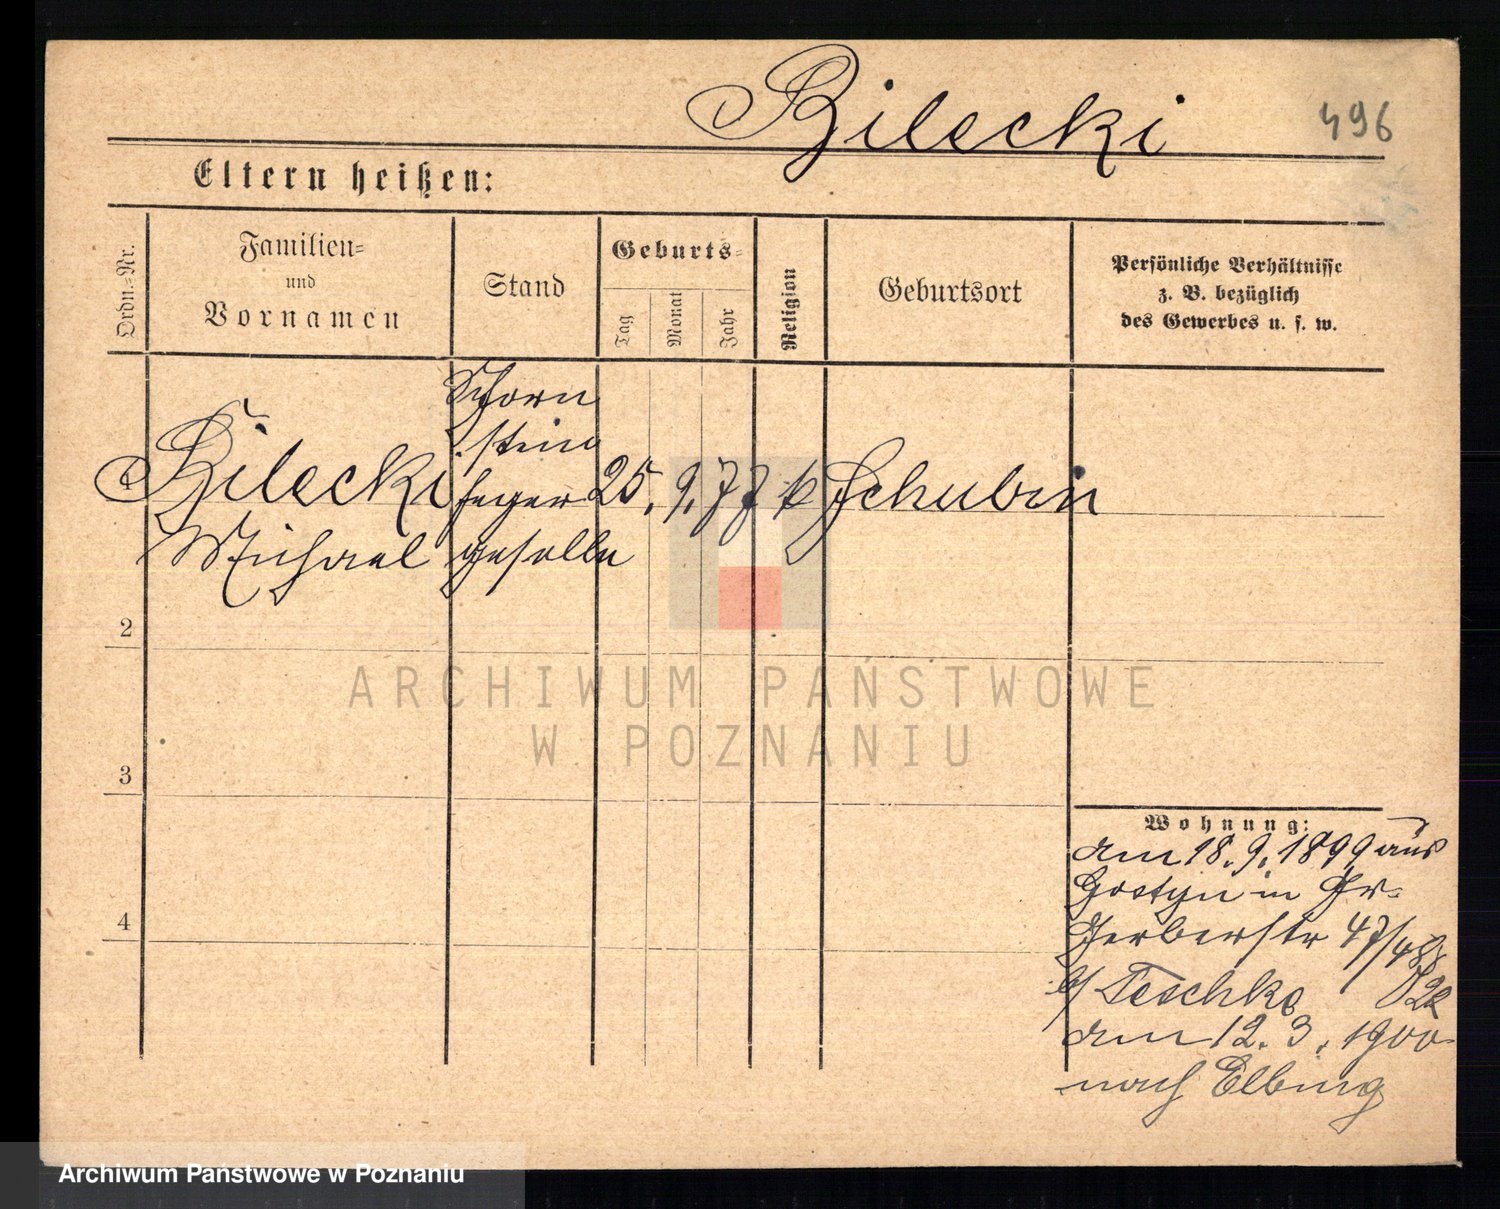 Bilecki
496
Eltern heißen:
Ordn.-Nr.
Familien-
und
Vornamen
Stand
Geburts-
Tag
Monat
Jahr
Religion
Geburtsort
Persönliche Verhältnisse
z. B. bezüglich
des Gewerbes u. s. w.
Schorn
stein
Bilecki feger 25. 9. 77 k Schubin
Michael geselle
2
3
4
Wohnung:
am 18. 9. 1899 aus
Gostyn in Gr-
Gerberstr 47/48
b/ Teschke
am 12. 3. 1900
nach Elbing
ARCHIWUM PAŃSTWOWE
W POZNANIU
Archiwum Państwowe w Poznaniu